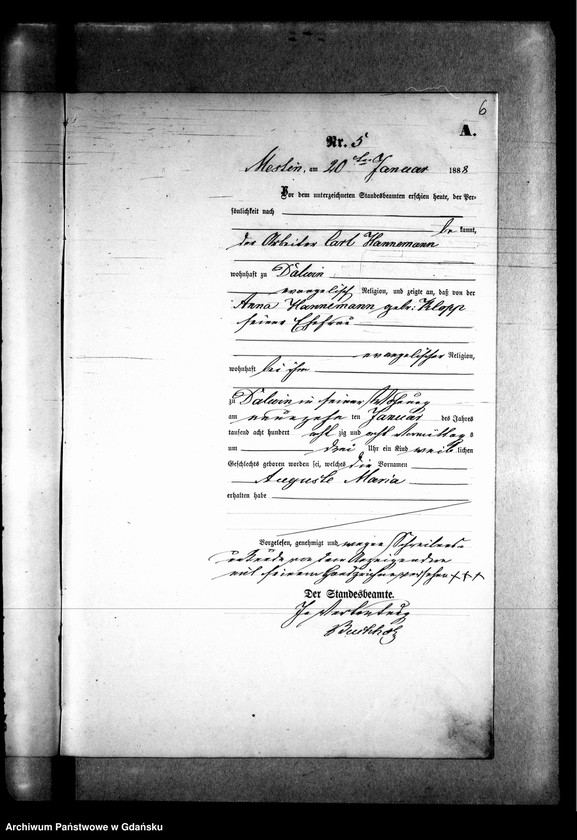 6
A.
Nr. 5
Mestin, am 20ten Januar 1888
Vor dem unterzeichneten Standesbeamten erschien heute, der Per-
sönlichkeit nach
be kannt,
der Arbeiter Carl Hannemann
wohnhaft zu Dalwin
evangelisch Religion, und zeigte an, daß von der
Anna Hannemann geb: Klopp
seiner Ehefrau
evangelischer Religion,
wohnhaft bei ihm
zu Dalwin in seiner Wohnung
am neunzehn ten Januar des Jahres
tausend acht hundert acht zig und acht Vormittag s
um drei Uhr ein Kind weib lichen
Geschlechts geboren worden sei, welches die Vornamen
Auguste Maria
erhalten habe
Vorgelesen, genehmigt und wegen Schreibens-
unkunde von dem Anzeigenden
mit seinem Handzeichen versehen +++
Der Standesbeamte.
In Vertretung
Buchholz
Archiwum Państwowe w Gdańsku